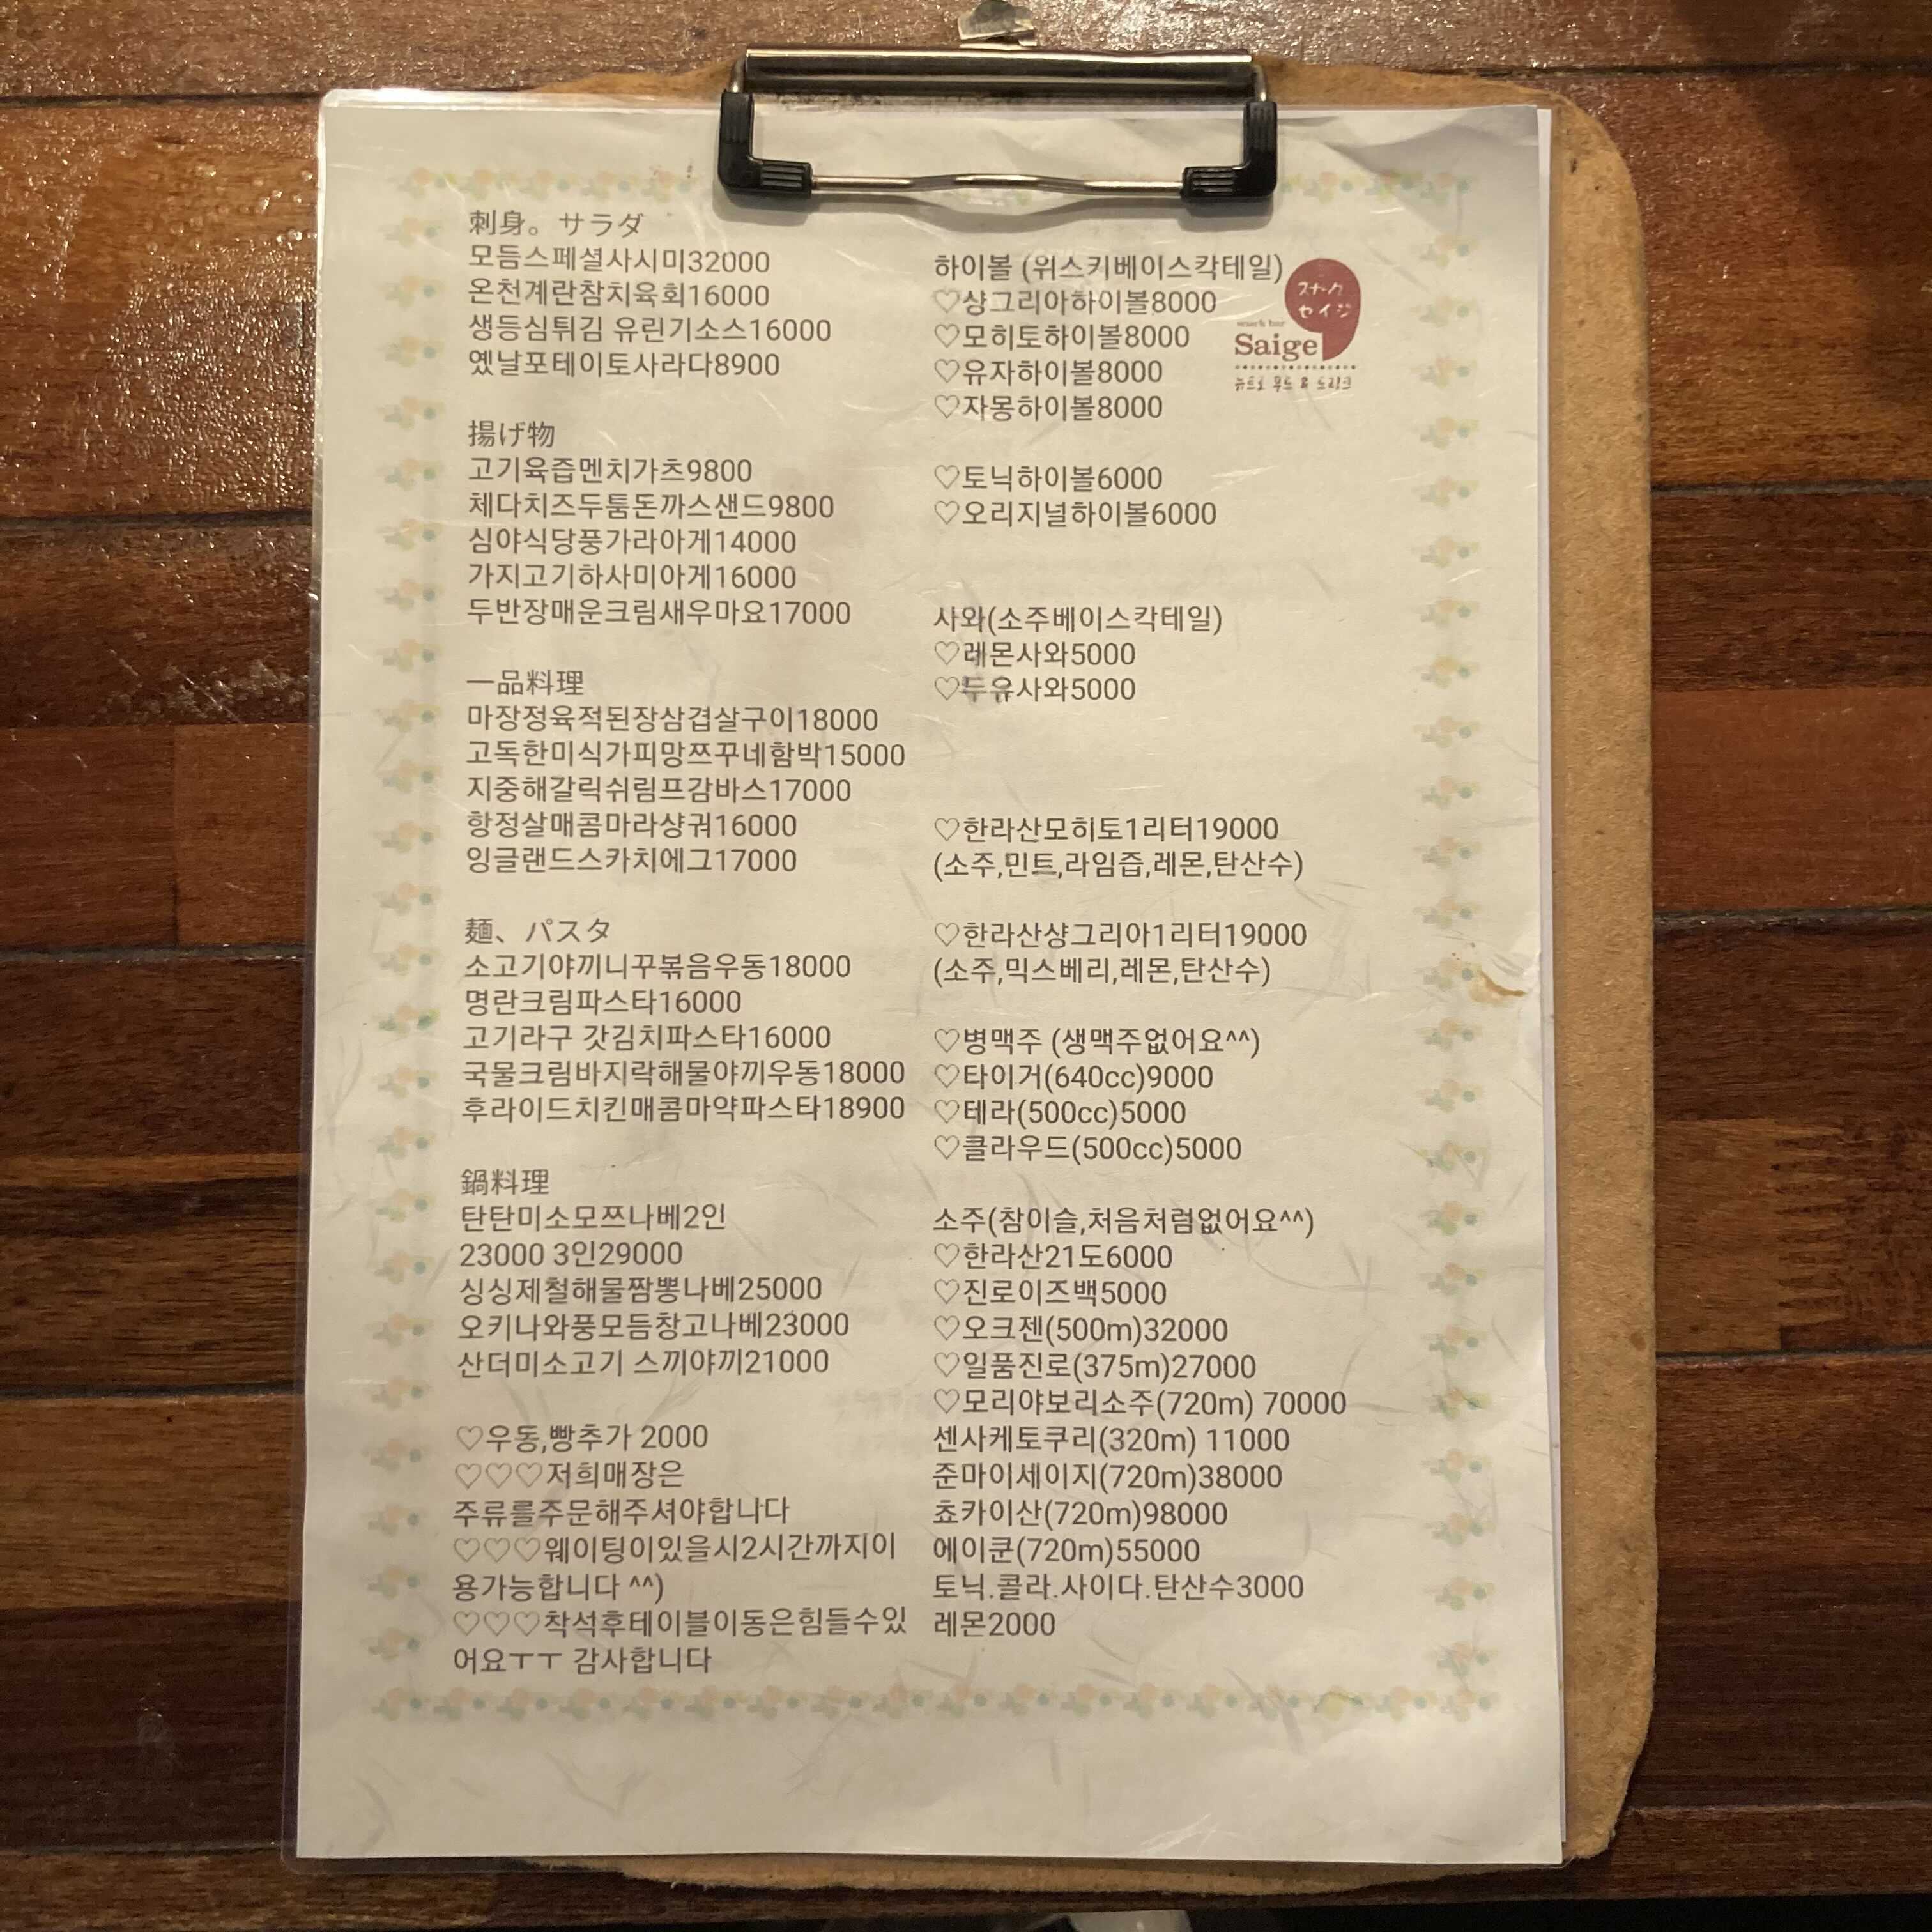 刺身。サラダ
모듬스페셜사시미32000
온천계란참치육회16000
생등심튀김 유린기소스16000
옜날포테이토사라다8900
揚げ物
고기육즙멘치가츠9800
체다치즈두툼돈까스샌드9800
심야식당풍가라아게14000
가지고기하사미아게16000
두반장매운크림새우마요17000
一品料理
마장정육적된장삼겹살구이18000
고독한미식가피망쯔꾸네함박15000
지중해갈릭쉬림프감바스17000
항정살매콤마라샹궈16000
잉글랜드스카치에그17000
麺、パスタ
소고기야끼니꾸볶음우동18000
명란크림파스타16000
고기라구 갓김치파스타16000
국물크림바지락해물야끼우동18000
후라이드치킨매콤마약파스타18900
鍋料理
탄탄미소모쯔나베2인
23000 3인29000
싱싱제철해물짬뽕나베25000
오키나와풍모듬창고나베23000
산더미소고기 스끼야끼21000
♡우동,빵추가 2000
♡♡♡저희매장은
주류를주문해주셔야합니다
♡♡♡웨이팅이있을시2시간까지이
용가능합니다 ^^)
♡♡♡착석후테이블이동은힘들수있
어요ㅜㅜ 감사합니다
하이볼 (위스키베이스칵테일)
♡샹그리아하이볼8000
♡모히토하이볼8000
♡유자하이볼8000
♡자몽하이볼8000
スナック
セイジ
snack bar
Saige
뉴트로 푸드 & 드링크
♡토닉하이볼6000
♡오리지널하이볼6000
사와(소주베이스칵테일)
♡레몬사와5000
♡두유사와5000
♡한라산모히토1리터19000
(소주,민트,라임즙,레몬,탄산수)
♡한라산샹그리아1리터19000
(소주,믹스베리,레몬,탄산수)
♡병맥주 (생맥주없어요^^)
♡타이거(640cc)9000
♡테라(500cc)5000
♡클라우드(500cc)5000
소주(참이슬,처음처럼없어요^^)
♡한라산21도6000
♡진로이즈백5000
♡오크젠(500m)32000
♡일품진로(375m)27000
♡모리야보리소주(720m) 70000
센사케토쿠리(320m) 11000
준마이세이지(720m)38000
쵸카이산(720m)98000
에이쿤(720m)55000
토닉.콜라.사이다.탄산수3000
레몬2000